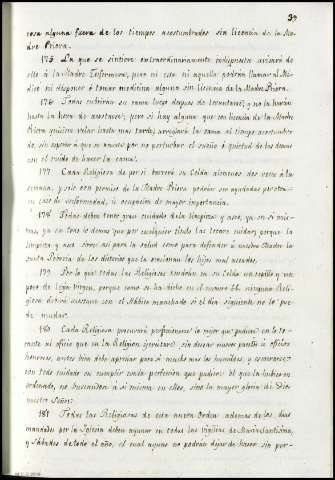 39
cosa alguna fuera de los tiempos acostumbrados sin licencia de la Ma-
dre Priora.
175 La que se sintiere extraordinariamente indispuesta avisará de
ello á la Madre Enfermera, pero ni esta ni aquella podrán llamar al Mé-
dico ni disponer ó tomar medicina alguna sin licencia de la Madre Priora.
176 Todas cubrirán su cama luego despues de levantarse; y no la harán
hasta la hora de acostarse; pero si hay alguna que con licencia de la Madre
Priora quisiere velar hasta mas tarde, arreglará la cama al tiempo acostumbra-
do, sin esperar á que se acueste por no perturbar el sueño ó quietud de las demas
con el ruido de hacer la cama.
177 Cada Religiosa de por sí barrerá su Celda almenos dos veces á la
semana, y solo con permiso de la Madre Priora podrán ser ayudadas por otra
en caso de enfermedad, ú ocupacion de mayor importancia.
178 Todas deben tener gran cuidado de la limpieza y aseo, ya en sí mis-
mas, ya en todo lo demas que por cualquier título las tocare cuidar; porque la
limpieza y aseo sirve así para la salud como para defender á nuestra Madre la
santa Pobreza de los dicterios que la ocasionan los hijos mal aseados.
179 Por lo que todas las Religiosas tendrán en su Celda un cepillo y un
pote de legía virgen, porque como se ha dicho en el número 66 ninguna Reli-
giosa deberá acostarse con el Hábito manchado si el dia siguiente no le pue-
de mudar.
180 Cada Religiosa procurará perfeccionarse lo mejor que pudiere en lo to-
cante al oficio que en la Religion ejercitare; sin desear nuevos puestos ú oficios
honrosos, antes bien debe apreciar para sí mucho mas los humildes, y esmerarse
con todo cuidado en cumplir cuanta perfeccion que pudiere el que la hubieren
ordenado, no buscandose á sí misma en ellos, sino la mayor gloria de Dios
nuestro Señor.
181 Todas las Religiosas de esta nueva Orden ademas de los dias
mandados por la Iglesia deben ayunar en todas las Vigilias de María Santísima,
y Sábados de todo el año, el cual ayuno no podrán dejar de hacer sin per-